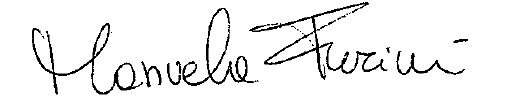 Manuela Furini